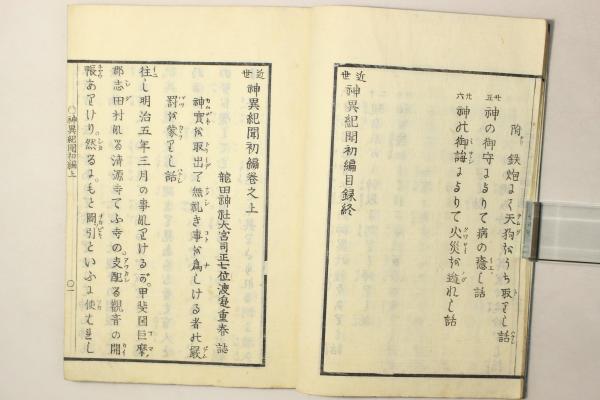 附 鉄炮にて天狗をうち取りし話
廿五 神の御守によりて病の癒し話
廿六 神の御誨によりて火災を遁れし話
近世 神異紀聞初編目録終
近世 神異紀聞初編巻之上
龍田神社大宮司正七位渡邉重春 誌
神寶を取出て無礼き事を為しける者の嚴
罰を蒙りし話
往し明治五年三月の事なりけるが。甲斐国巨摩
郡志田村なる清源寺てふ寺の。支配る観音の開
帳ありけり然るにもと鬮引といふに使むをし
神異紀聞初編上